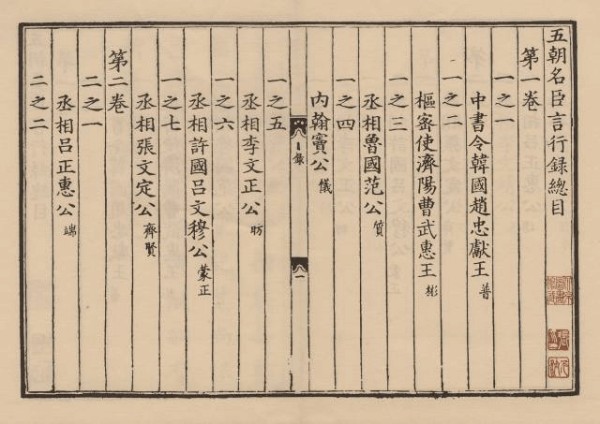 五朝名臣言行録總目
第一卷
一之一
中書令韓國趙忠獻王普
一之二
樞密使濟陽曹武惠王彬
一之三
丞相魯國范公質
一之四
内翰竇公儀
一之五
丞相李文正公昉
一之六
丞相許國吕文穆公蒙正
一之七
丞相張文定公齊賢
第二卷
二之一
丞相吕正惠公端
二之二